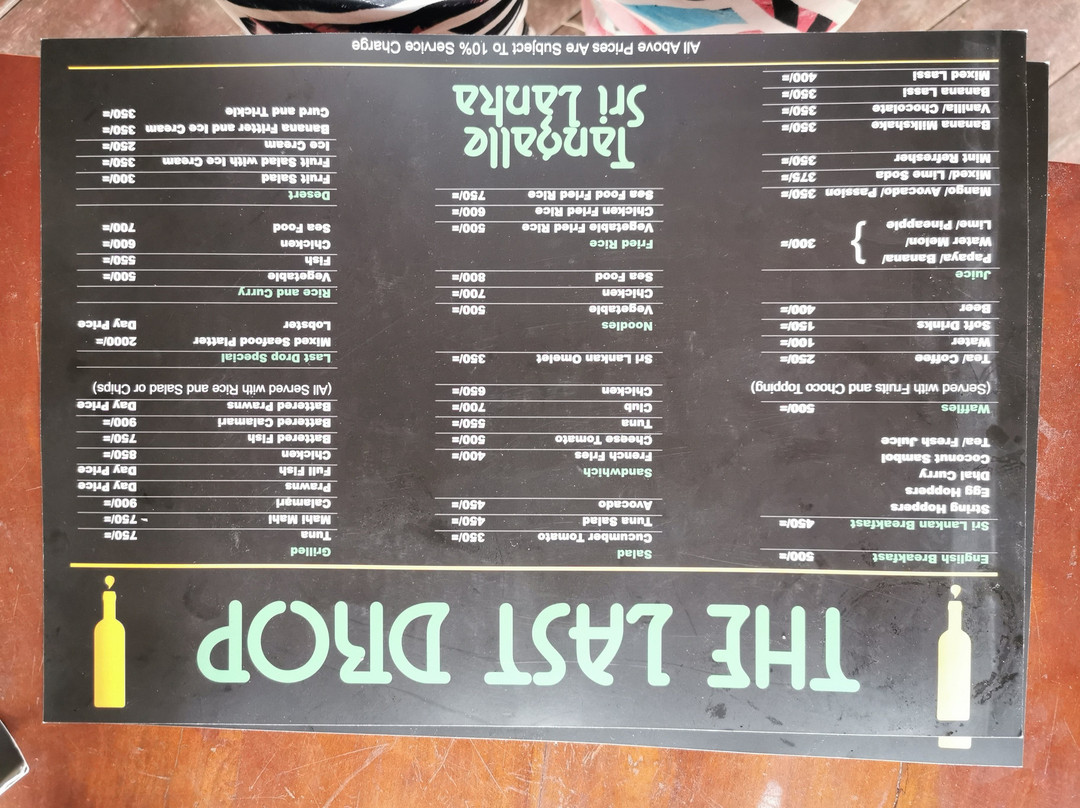 THE LAST DROP
English Breakfast 500/=
Sri Lankan Breakfast 450/=
String Hoppers
Egg Hoppers
Dhal Curry
Coconut Sambol
Tea/ Fresh Juice
Waffles 500/=
(Served with Fruits and Choco Topping)
Tea/ Coffee 250/=
Water 100/=
Soft Drinks 150/=
Beer 400/=
Juice
Papaya/ Banana/
Water Melon/ } 300/=
Lime/ Pineapple
Mango/ Avocado/ Passion 350/=
Mixed/ Lime Soda 375/=
Mint Refresher 350/=
Banana Milkshake 350/=
Vanilla/ Chocolate 350/=
Banana Lassi 350/=
Mixed Lassi 400/=
Salad
Cucumber Tomato 350/=
Tuna Salad 450/=
Avocado 450/=
Sandwhich
French Fries 400/=
Cheese Tomato 500/=
Tuna 550/=
Club 700/=
Chicken 650/=
Sri Lankan Omelet 350/=
Noodles
Vegetable 500/=
Chicken 700/=
Sea Food 800/=
Fried Rice
Vegetable Fried Rice 500/=
Chicken Fried Rice 600/=
Sea Food Fried Rice 750/=
Tangalle
Sri Lanka
Grilled
Tuna 750/=
Mahi Mahi - 750/=
Calamari 900/=
Prawns Day Price
Full Fish Day Price
Chicken 850/=
Battered Fish 750/=
Battered Calamari 900/=
Battered Prawns Day Price
(All Served with Rice and Salad or Chips)
Last Drop Special
Mixed Seafood Platter 2000/=
Lobster Day Price
Rice and Curry
Vegetable 500/=
Fish 550/=
Chicken 600/=
Sea Food 700/=
Desert
Fruit Salad 300/=
Fruit Salad with Ice Cream 350/=
Ice Cream 250/=
Banana Fritter and Ice Cream 350/=
Curd and Trickle 350/=
All Above Prices Are Subject To 10% Service Charge